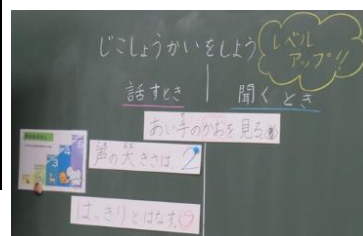 じこしょうかいをしよう
レベル
アップ!!
話すとき
聞くとき
あい手のかおを見る
声の大きさは 2
はっきりとはなす